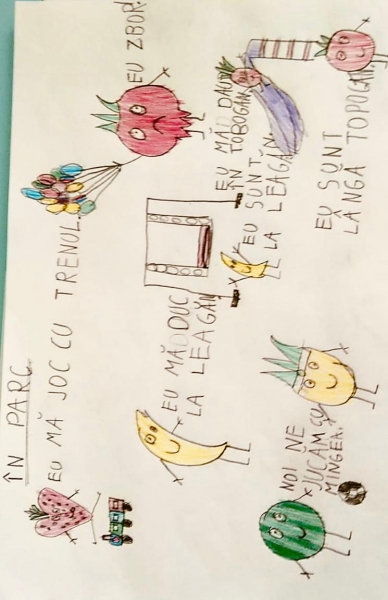 ÎN PARC
EU MĂ JOC CU TRENUL.
EU ZBOR.
EU MĂ DUC
LA LEAGĂN
EU MĂ DAU
ÎN TOBOGAN.
EU SUNT
LA LEAGĂN
EU SUNT
LANGĂ TOPOGAN.
NOI NE
JUCĂM CU
MINGEA.